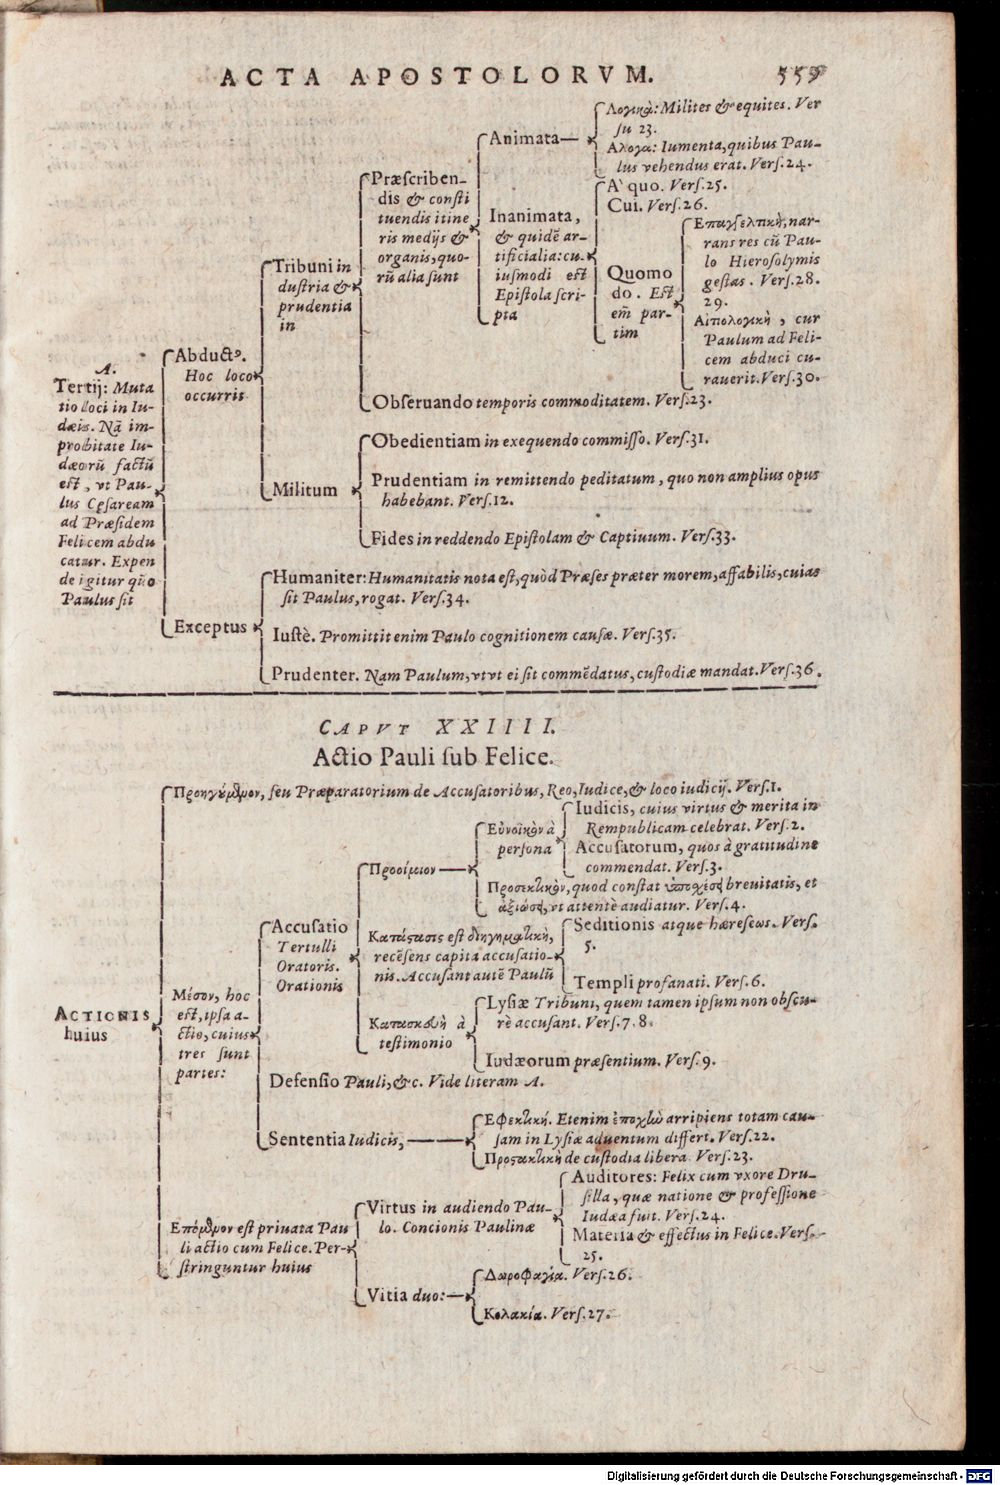 ACTA APOSTOLORVM. 559
A.
Tertij: Muta
tio loci in Iu-
dæis. Nã im-
probitate Iu-
dæorũ factũ
est, vt Pau-
lus Cęsaream
ad Præsidem
Felicem abdu
catur. Expen
de igitur quo
Paulus sit
Abductꝰ.
Hoc loco
occurrit
Tribuni in
dustria &
prudentia
in
Præscriben-
dis & consti
tuendis itine
ris medijs &
organis, quo-
rũ alia sunt
Animata—
Λογικὰ: Milites & equites. Ver
su 23.
Αλογα: Iumenta, quibus Pau-
lus vehendus erat. Vers. 24.
Inanimata,
& quidẽ ar-
tificialia: cu-
iusmodi est
Epistola scri-
pta
A' quo. Vers. 25.
Cui. Vers. 26.
Quomo
do. Est
em̃ par-
tim
Επαγγελτικὴ, nar-
rans res cũ Pau-
lo Hierosolymis
gestas. Vers. 28.
29.
Αἰτιολογικὴ, cur
Paulum ad Feli-
cem abduci cu-
rauerit. Vers. 30.
Obseruando temporis commoditatem. Vers. 23.
Militum
Obedientiam in exequendo commisso. Vers. 31.
Prudentiam in remittendo peditatum, quo non amplius opus
habebant. Vers. 12.
Fides in reddendo Epistolam & Captiuum. Vers. 33.
Exceptus
Humaniter: Humanitatis nota est, quòd Præses præter morem, affabilis, cuias
sit Paulus, rogat. Vers. 34.
Iustè. Promittit enim Paulo cognitionem causæ. Vers. 35.
Prudenter. Nam Paulum, vtvt ei sit commẽdatus, custodiæ mandat. Vers. 36.
CAPVT XXIIII.
Actio Pauli sub Felice.
ACTIONIS
huius
Προηγούμενον, seu Præparatorium de Accusatoribus, Reo, Iudice, & loco iudicij. Vers. 1.
Μέσον, hoc
est, ipsa a-
ctio, cuius
tres sunt
partes:
Accusatio
Tertulli
Oratoris.
Orationis
Προοίμιον—
Εὐνοϊκὸν à
persona
Iudicis, cuius virtus & merita in
Rempublicam celebrat. Vers. 2.
Accusatorum, quos à gratitudine
commendat. Vers. 3.
Προσεκτικὸν, quod constat ὑποχέσει breuitatis, et
ἀξιώσει, vt attentè audiatur. Vers. 4.
Κατάστασις est διηγηματικὴ,
recẽsens capita accusatio-
nis. Accusant autẽ Paulũ
Seditionis atque hæreseως. Vers.
5.
Templi profanati. Vers. 6.
Κατασκευὴ à
testimonio
Lysiæ Tribuni, quem tamen ipsum non obscu-
rè accusant. Vers. 7. 8.
Iudæorum præsentium. Vers. 9.
Defensio Pauli, &c. Vide literam A.
Sententia Iudicis,
Εφεκτική. Etenim ἐποχὼ arripiens totam cau-
sam in Lysiæ aduentum differt. Vers. 22.
Προστακτικὴ de custodia libera. Vers. 23.
Επόμενον est priuata Pau
li actio cum Felice. Per-
stringuntur huius
Virtus in audiendo Pau-
lo. Concionis Paulinæ
Auditores: Felix cum vxore Dru-
silla, quæ natione & professione
Iudæa fuit. Vers. 24.
Materia & effectus in Felice. Vers.
25.
Vitia duo:—
Δωροφαγία. Vers. 26.
Κολακία. Vers. 27.
Digitalisierung gefördert durch die Deutsche Forschungsgemeinschaft - DFG